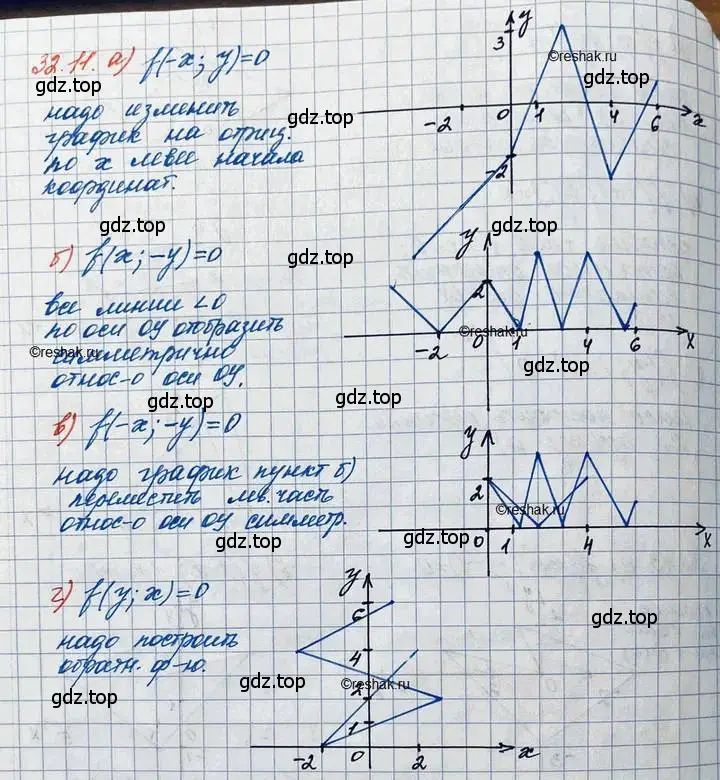 32.11. а) f(-x; y)=0
gdz.top
надо изменить
график на отриц.
по х левее начала
координат.
gdz.top
y
3
©reshak.ru
gdz.top
gdz.top
-2
0
1
4
6
x
-2
gdz.top
gdz.top
б) f(x; -y)=0
gdz.top
все линии <0
по оси ОУ отобразить
©reshak.ru
симметрично
относ-о оси ОУ.
y
2
©reshak.ru
-2
0
1
4
6
x
gdz.top
gdz.top
gdz.top
в) f(-x; -y)=0
надо график пункт б)
переместить лев. часть
относ-о оси ОУ симметр.
gdz.top
y
2
©reshak.ru
0
1
4
x
gdz.top
г) f(y; x)=0
надо построить
обратн. ф-ю.
gdz.top
gdz.top
gdz.top
y
6
4
©reshak.ru
2
1
-2
0
2
x